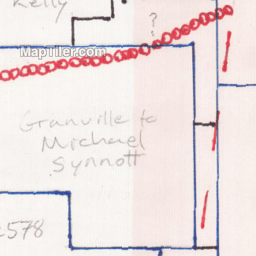 Kelly
?
MapTiler.com
Granville to
Michael
Synnott
2578